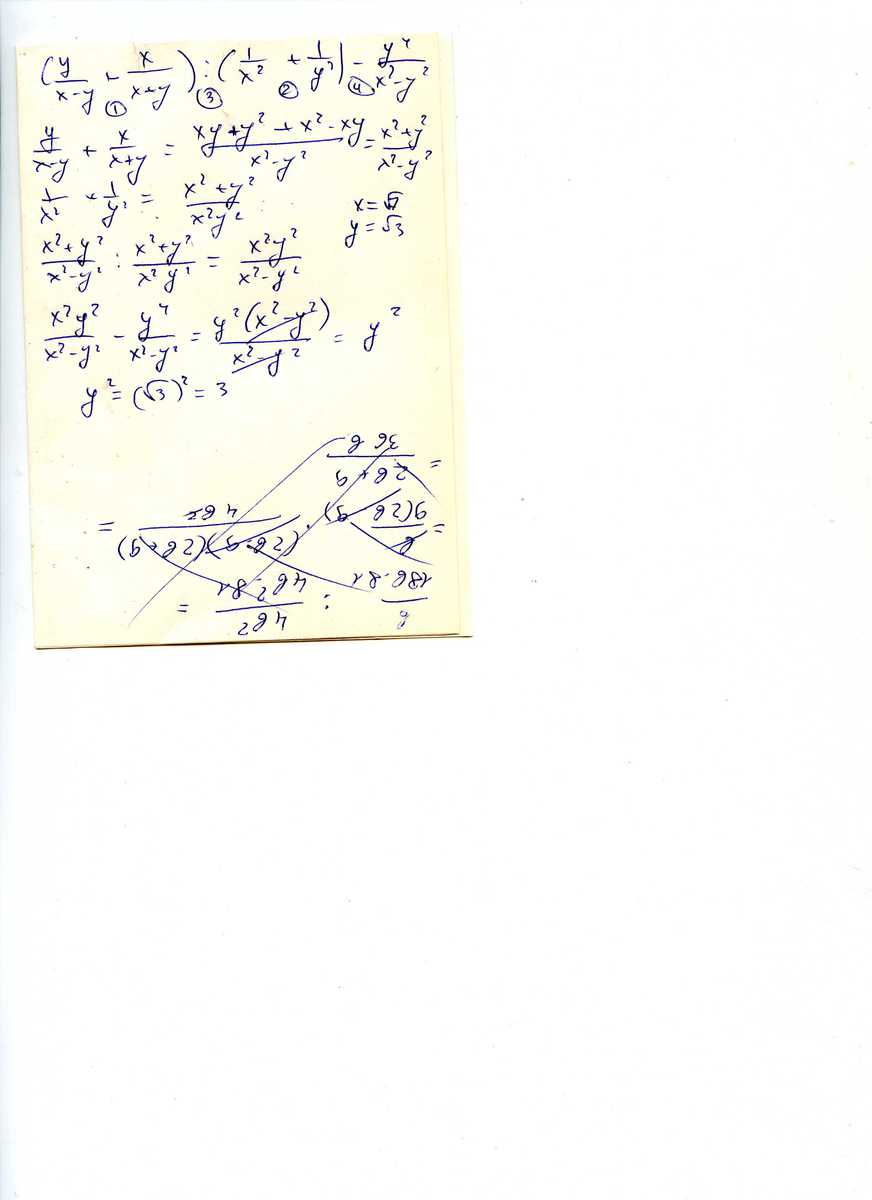 (y/(x-y) + x/(x+y)) : (1/x² + 1/y²) - y⁴/(x²-y²)
① ③ ② ④
y/(x-y) + x/(x+y) = (xy+y²+x²-xy)/(x²-y²) = (x²+y²)/(x²-y²)
1/x² + 1/y² = (x²+y²)/(x²y²)
x=√7
y=√3
(x²+y²)/(x²-y²) : (x²+y²)/(x²y²) = x²y²/(x²-y²)
x²y²/(x²-y²) - y⁴/(x²-y²) = y²(x²-y²)/(x²-y²) = y²
y² = (√3)² = 3
в/(18в-81) : 4в²/(4в²-81) =
= в/(9(2в-9)) · (2в-9)(2в+9)/4в² =
= (2в+9)/36в